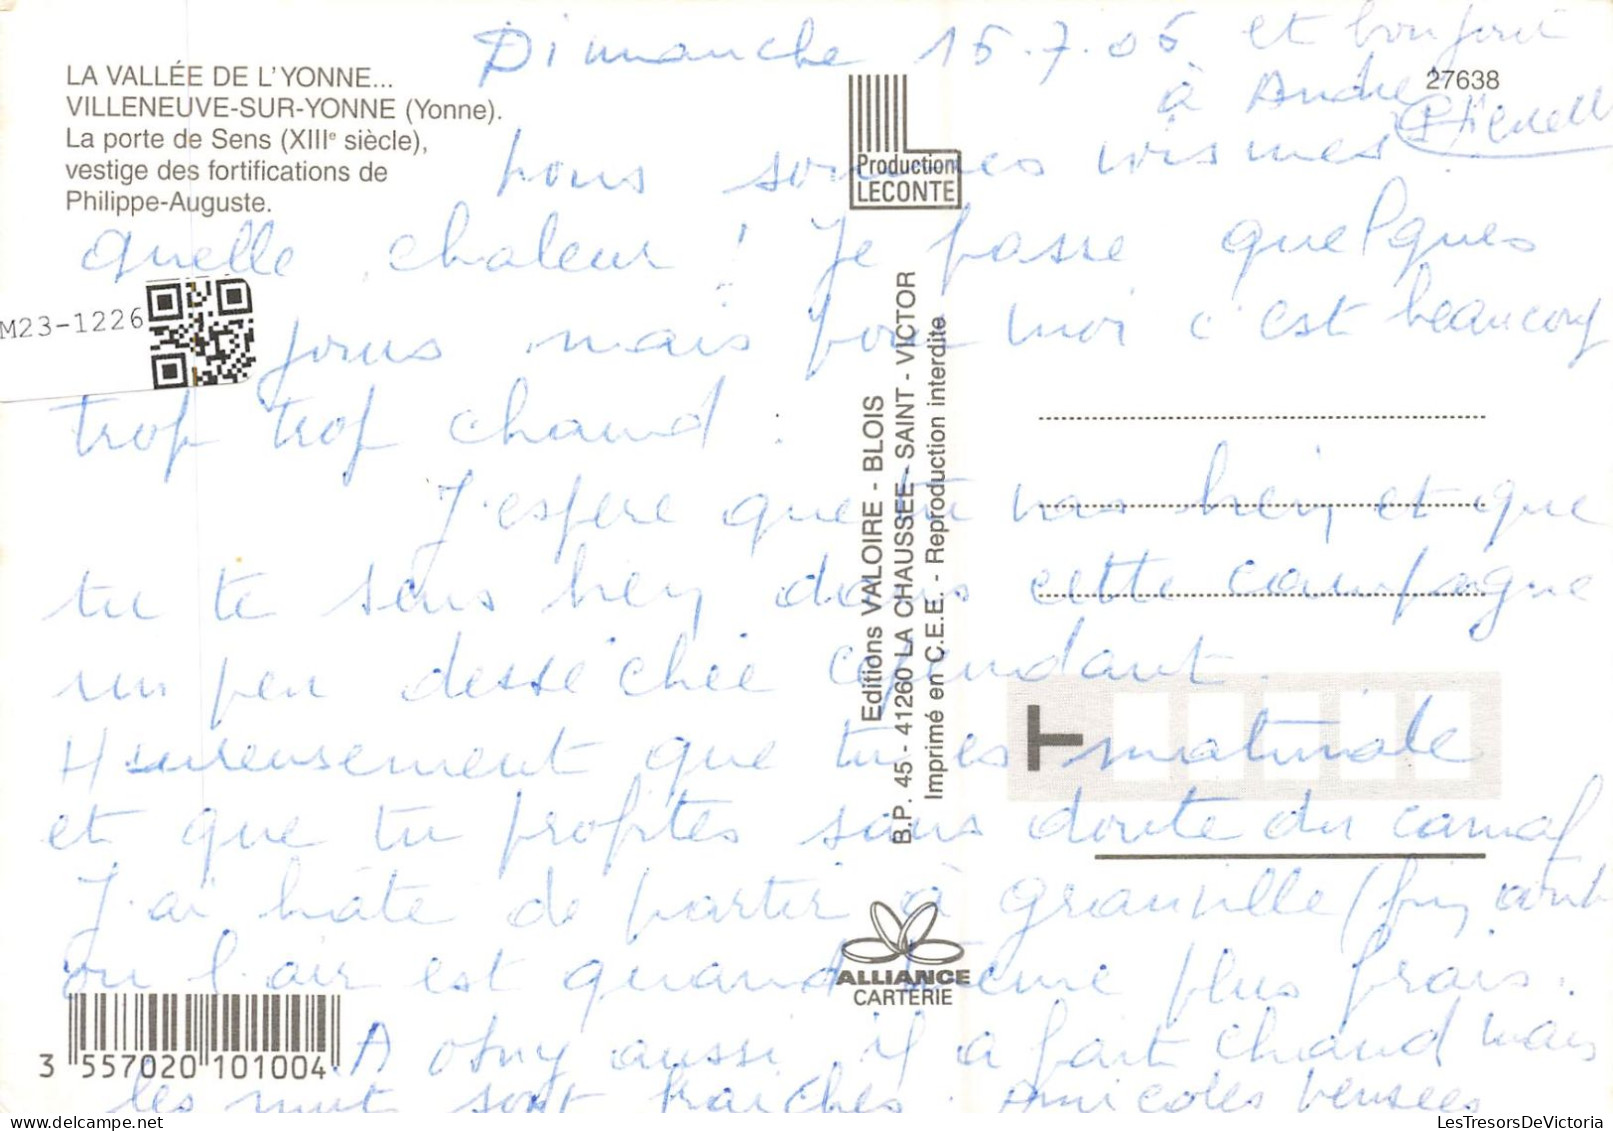 Dimanche 15.7.06 et bonjour
à André
LA VALLÉE DE L'YONNE...
VILLENEUVE-SUR-YONNE (Yonne).
La porte de Sens (XIIIe siècle),
vestige des fortifications de
Philippe-Auguste.
27638
Production
LECONTE
nous sommes
quelle chaleur ! Je passe quelques
jours mais pour moi c'est beaucoup
trop trop chaud.
J'espère que tu vas bien et que
tu te sens bien dans cette campagne
un peu desséchée cependant.
Heureusement que tu es matinale
et que tu profites sans doute du
J'ai hâte de partir à granville (fin août
ou l'air est quand même plus frais.
A Osny aussi il a fait chaud mais
les nuits sont fraiches. Amicales pensées
M23-1226
Editions VALOIRE - BLOIS
B.P. 45 - 41260 LA CHAUSSEE - SAINT - VICTOR
Imprimé en C.E.E. - Reproduction interdite
ALLIANCE
CARTERIE
3 557020 101004
LesTresorsDeVictoria.com